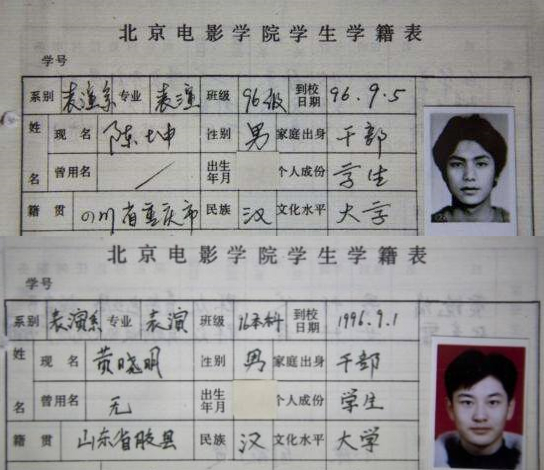 北京电影学院学生学籍表
学号
系别 表演系 专业 表演 班级 96级 到校日期 96.9.5
姓名 现名 陈坤 性别 男 家庭出身 干部
曾用名 / 出生年月 个人成份 学生
籍贯 四川省重庆市 民族 汉 文化水平 大学
北京电影学院学生学籍表
学号
系别 表演系 专业 表演 班级 96本科 到校日期 1996.9.1
姓名 现名 黄晓明 性别 男 家庭出身 干部
曾用名 无 出生年月 个人成份 学生
籍贯 山东省胶县 民族 汉 文化水平 大学